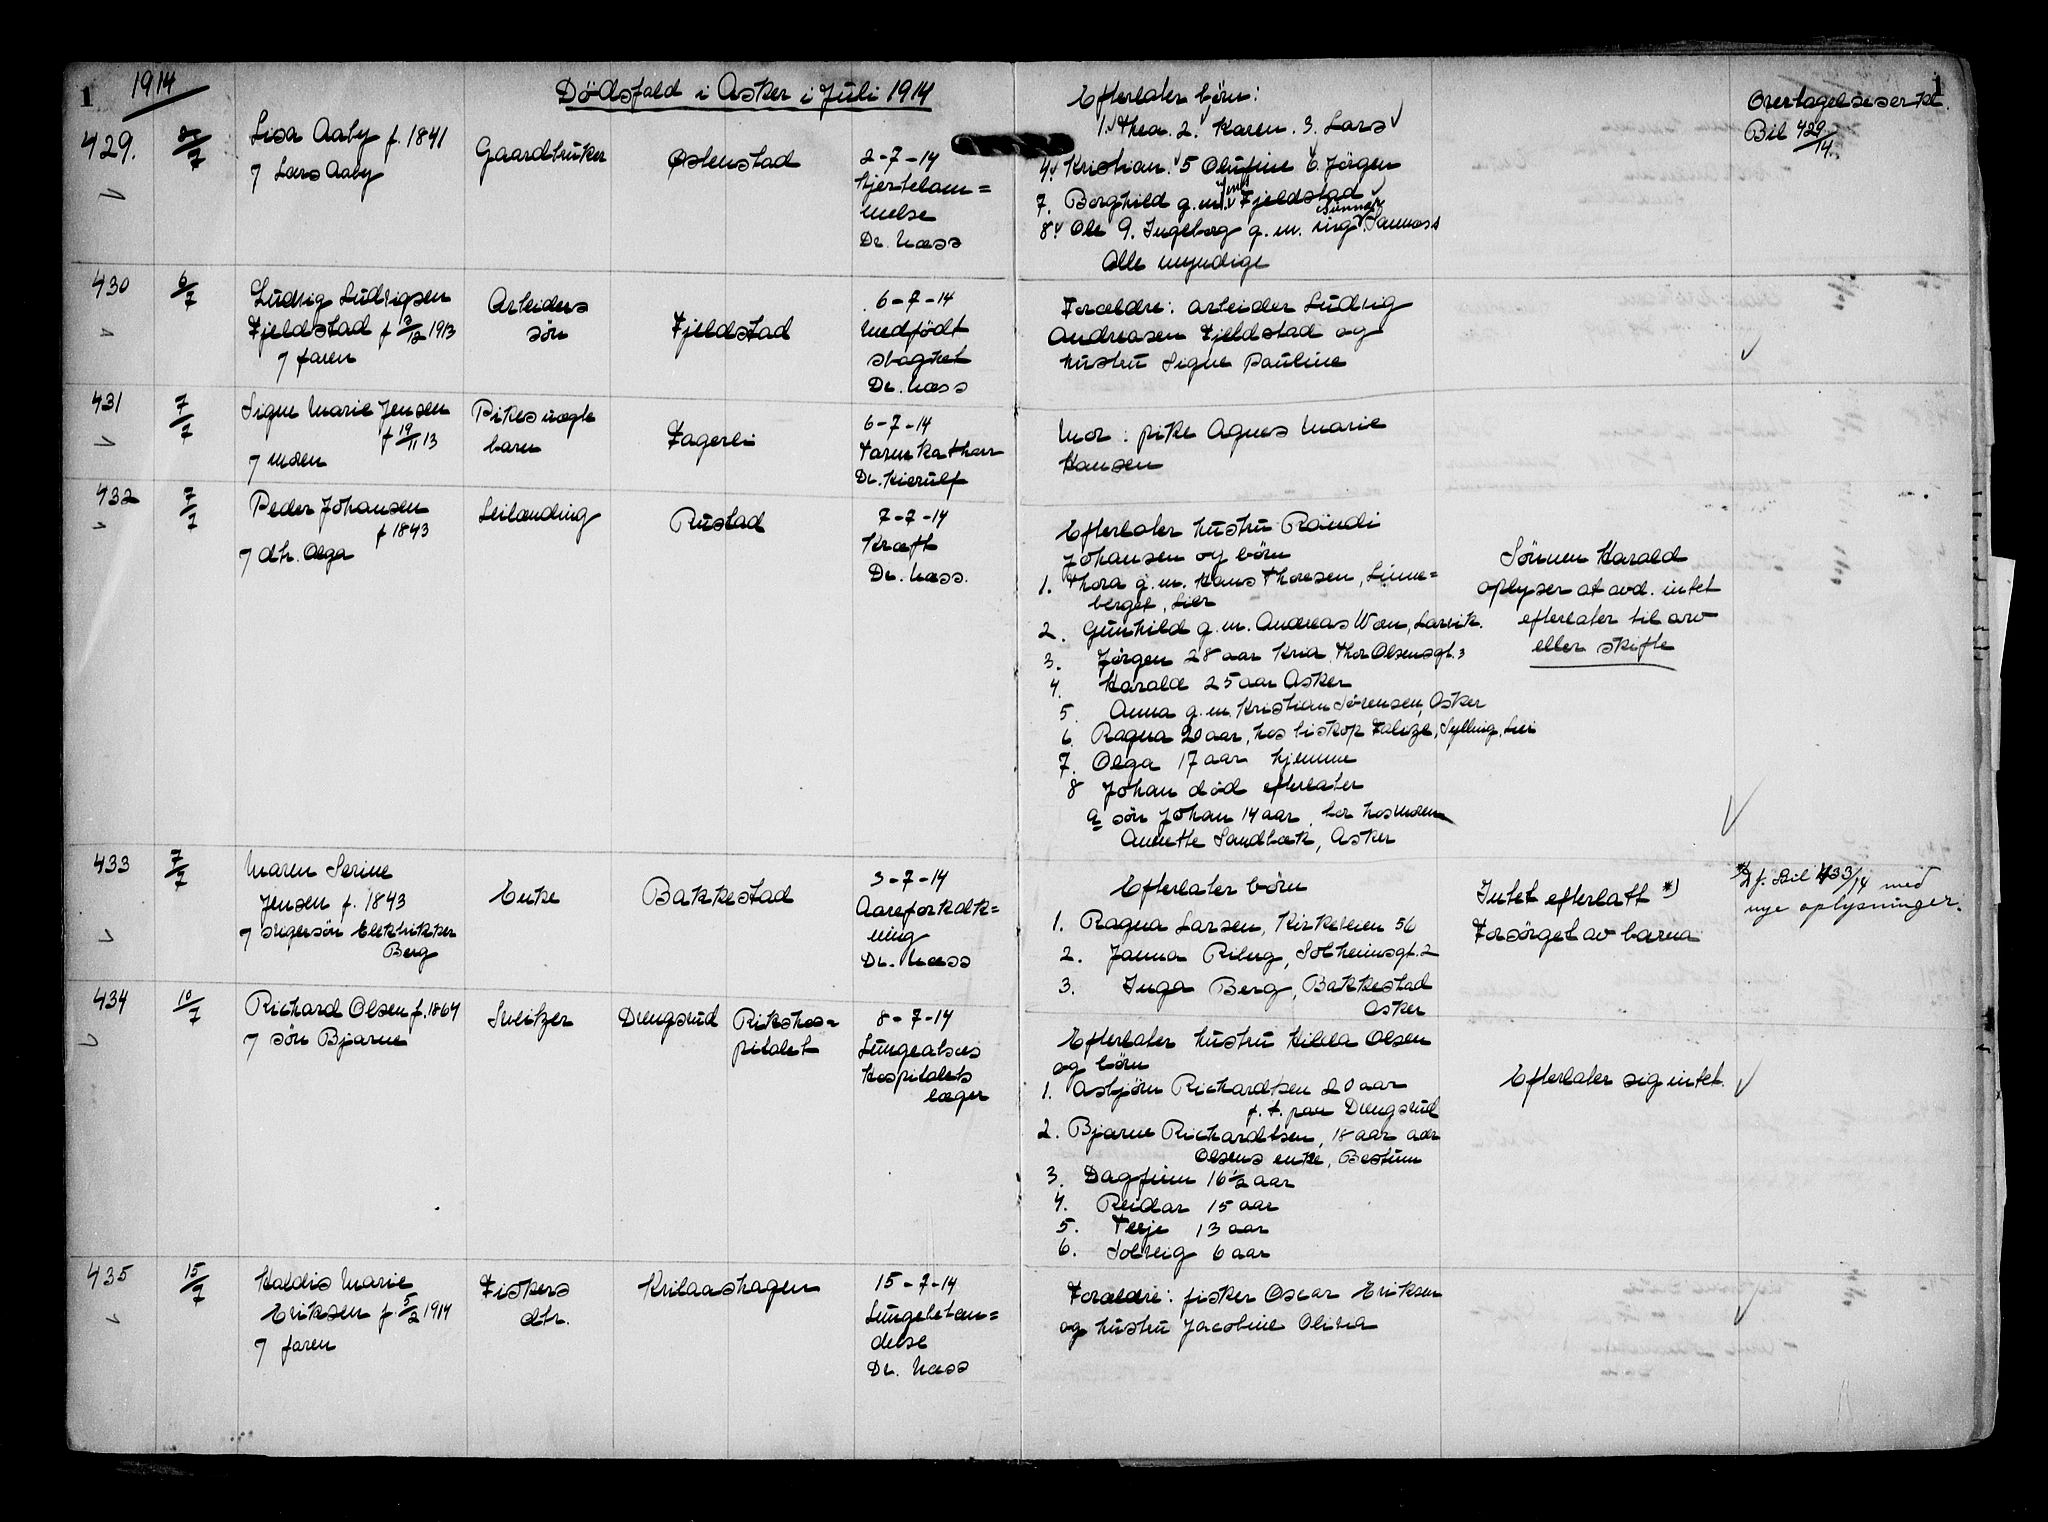 1
1914
Dödsfald i Asker i Juli 1914
1
429.
Lisa Aaby f. 1841
7 Lars Aaby
Gaardbruker
Østenstad
2-7-14
hjertelam=
melse
Dr. Næss
Efterlater börn:
1. Thea. 2. Karen. 3. Lars
4. Kristian. 5 Olufine 6. Jörgen
7. Borghild g.m. Fjeldstad
8. Ole 9. Ingeborg g.m. ing. Sannæss
Alle myndige
Overtagelseserkl.
Bil 429/14.
430
6/7
Ludvig Ludvigsen
Fjeldstad f 3/12 1913
7 faren
Arbeiders
sön
Fjeldstad
6-7-14
Medfödt
svaghet
Dr. Næss
Forældre: arbeider Ludvig
Andreasen Fjeldstad og
hustru Signe Pauline
431
7/7
Signe Marie Jensen
f 19/11 13
7 moen
Pikes uægte
barn
Fagerli
6-7-14
Tarmkatharr
Dr. Kierulf
Mor: pike Agnes Marie
Hansen
432
7/7
Peder Johansen
f 1843
7 dtr. Olga
Leilænding
Rustad
7-7-14
Kræft
Dr. Næss.
Efterlater hustru Randi
Johansen og börn
1. Thora g.m. Hans Thoresen, Linne=
berget, Lier
2. Gunhild g.m. Andreas Wæn, Larvik.
3. Jörgen 28 aar Kria, Thor Olsensgt. 3
4. Harald 25 aar Asker
5. Anna g.m. Kristian Sørensen, Asker
6. Ragna 20 aar, hos biskop Falize, Sylling, Lier
7. Olga 17 aar hjemme
8 Johan död efterlater
a sön Johan 14 aar, bor hos moren
Annette Sandbæk, Asker
Sönnen Harald
oplyser at avd. intet
efterlater til arv
eller skifte
433
7/7
Maren Serine
Jensen f. 1843
7 svigersön Elektrikker
Berg
Enke
Bakkestad
3-7-14
Aareforkalk=
ning
Dr. Næss
Efterlater börn
1. Ragna Larsen, Kirkeveien 56
2. Janna Riberg, Solheimsgt. 2
3. Inga Berg, Bakkestad
Asker
Intet efterlatt *)
Forsörget av barna
*) Jf. Bil 433/14 med
nye oplysninger.
434
10/7
Richard Olsen f. 1864
7 sön Bjarne
Sveitzer
Drengsrud
Rikshos=
pitalet
8-7-14
Lungeabsces
Hospitalets
læger
Efterlater hustru Hilda Olsen
og börn
1. Asbjörn Richardtsen 20 aar
f. t. paa Drengsrud
2. Bjarne Richardtsen, 18 aar adr
Olsens enke, Bestum
3. Dagfinn 16½ aar
4. Reidar 15 aar
5. Terje 13 aar
6. Solveig 6 aar
Efterlater sig intet.
435
15/7
Haldis Marie
Eriksen f. 5/2 1914
7 faren
Fiskers
dtr.
Krilaashagen
15-7-14
Lungebetæn=
delse
Dr. Næss
Forældre: fisker Oscar Eriksen
og hustru Jacobine Olivia